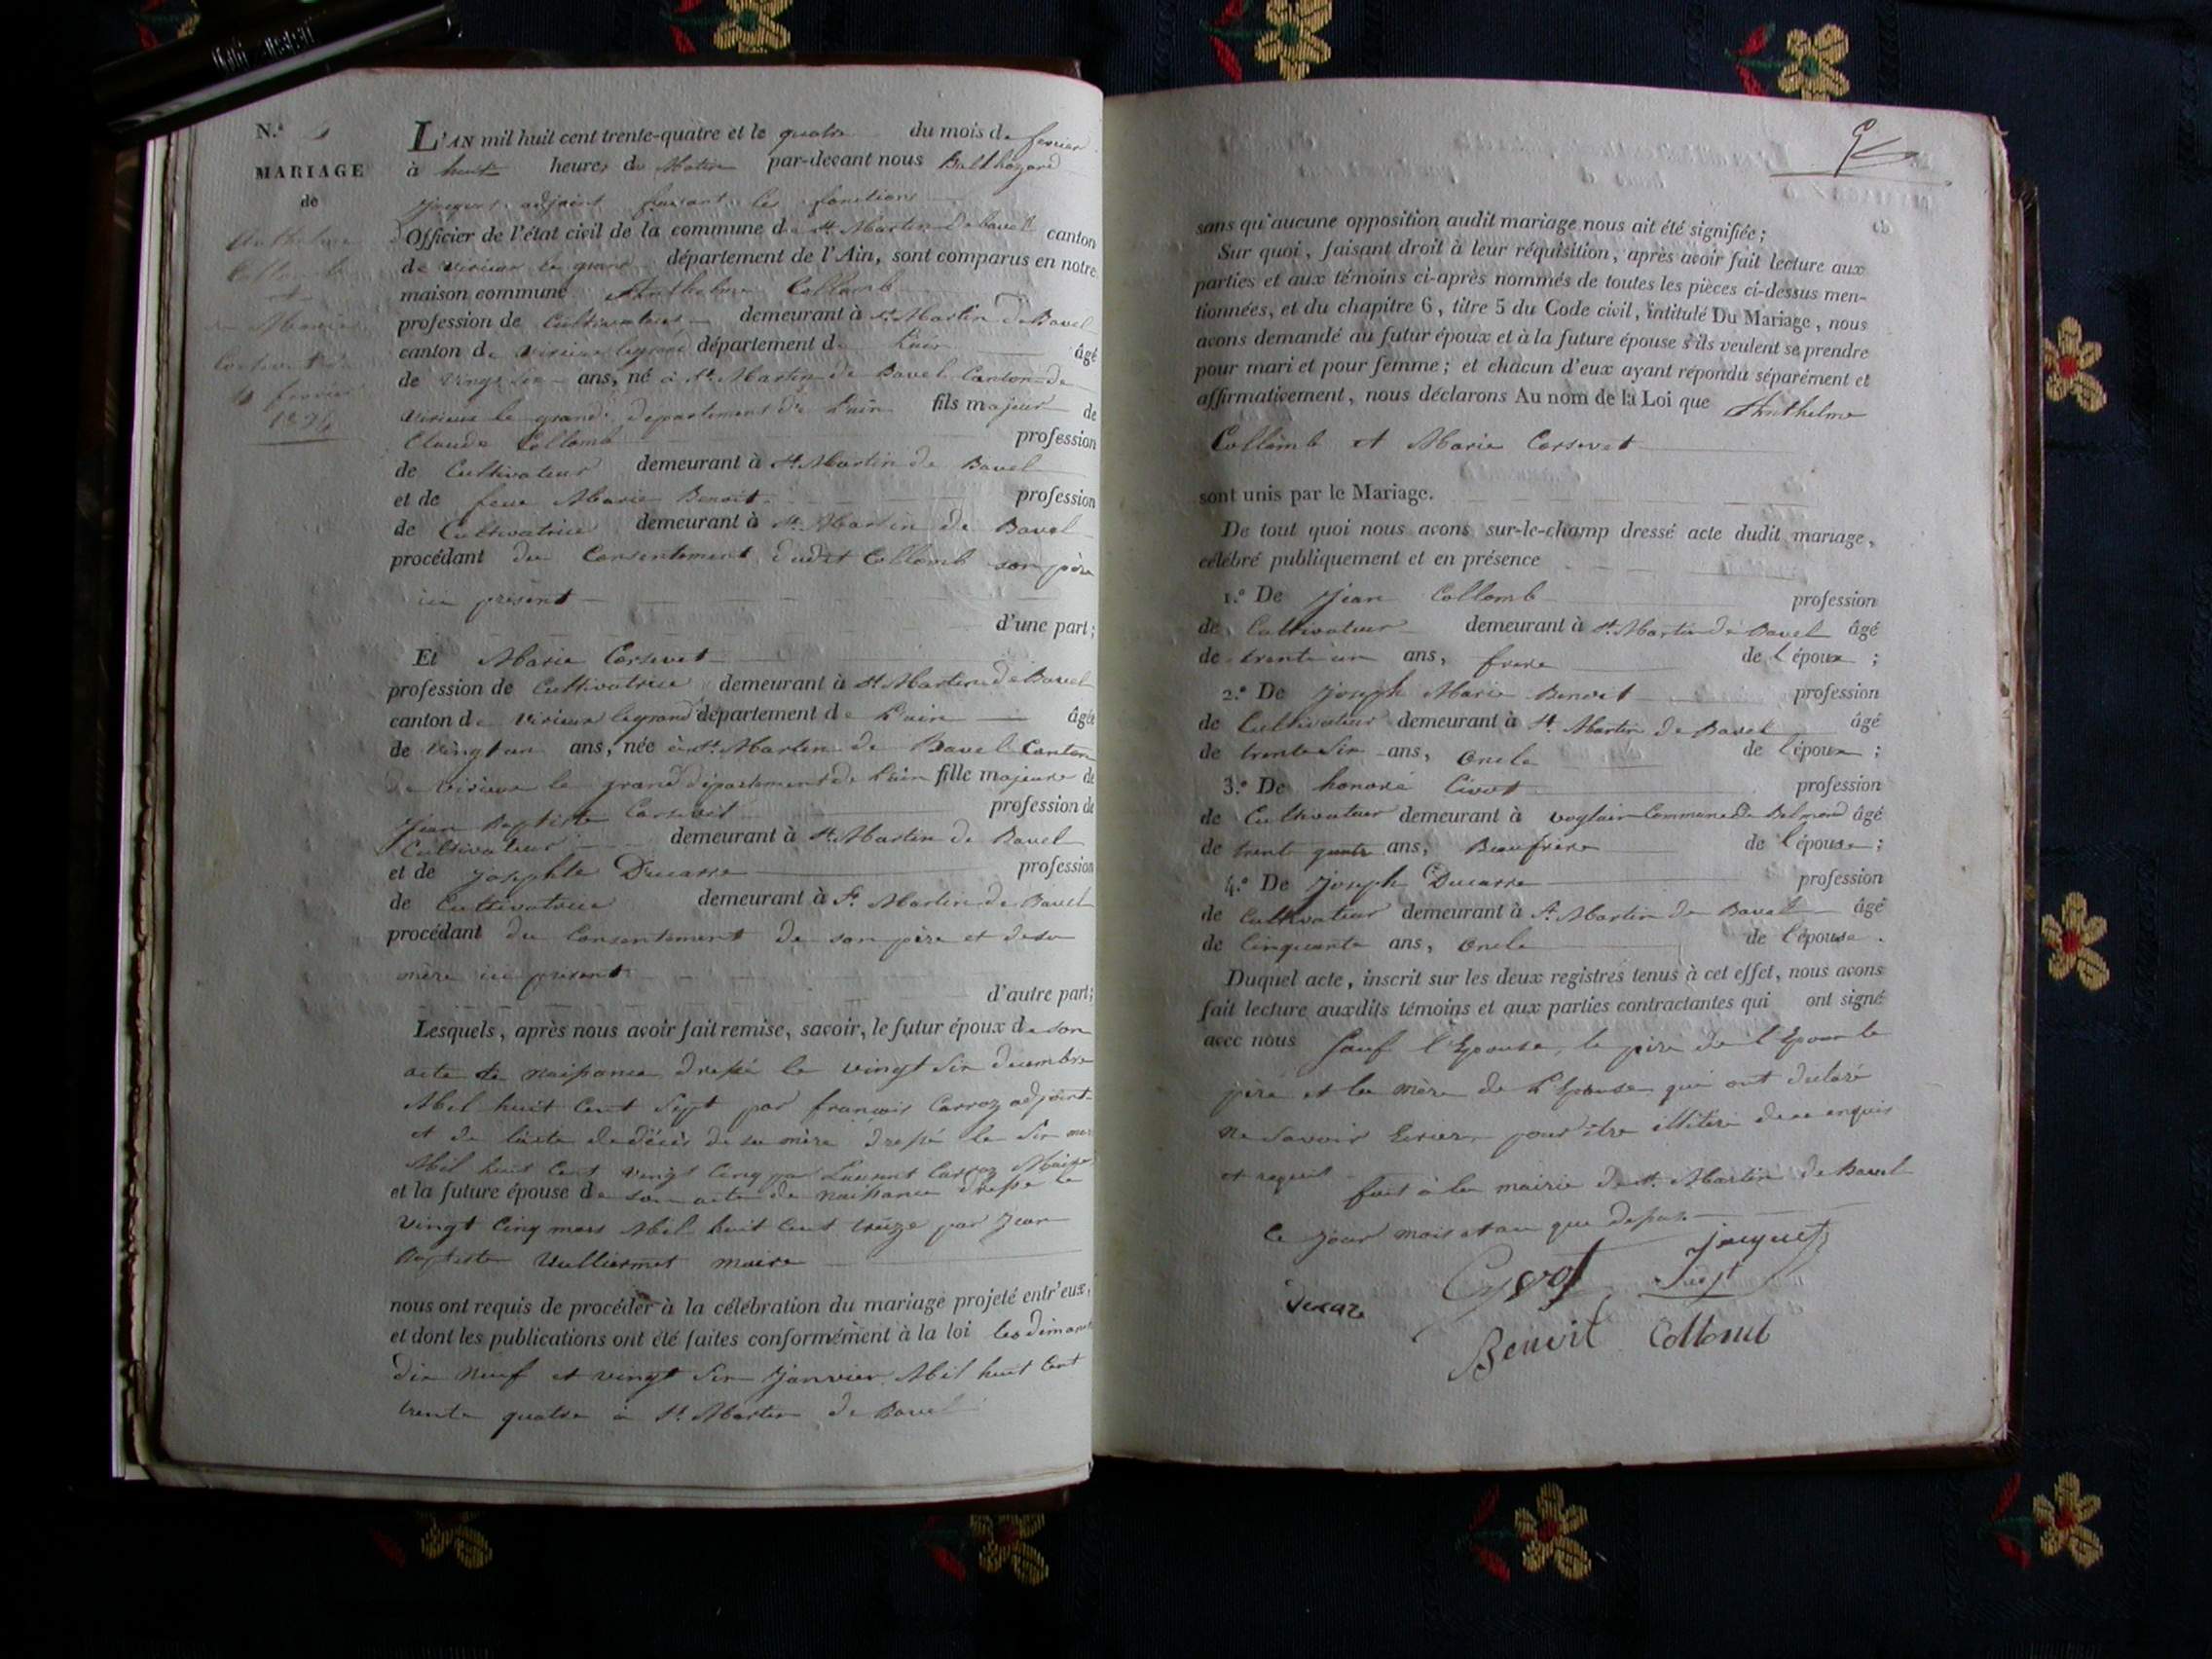 N.º
MARIAGE
de
Anthelme
Collomb
et
Marie
4 février
1834
L'AN mil huit cent trente-quatre et le quatre du mois de fevrier
à huit heures du Matin par-devant nous Balthazard
Jacquet adjoint faisant les fonctions
Officier de l'état civil de la commune de St. Martin de Bavel canton
de virieux le grand département de l'Ain, sont comparus en notre
maison commune Anthelme Collomb
profession de Cultivateur demeurant à St. Martin de Bavel
canton de virieux legrand département de L'ain âgé
de vingt six ans, né à St. Martin de Bavel Canton de
virieux le grand departement de L'ain fils majeur de
Claude Collomb profession
de Cultivateur demeurant à St. Martin de Bavel
et de feue Marie Benoit profession
de Cultivatrice demeurant à St. Martin de Bavel
procédant du Consentement dudit Collomb son père
ici présent
d'une part;
Et Marie Corsevet
profession de Cultivatrice demeurant à St Martin de Bavel
canton de virieux legrand département de L'ain âgée
de vingt un ans, née à St. Martin de Bavel Canton
de virieux le grand département de L'ain fille majeure de
Jean Baptiste Corsevet profession de
Cultivateur demeurant à St. Martin de Bavel
et de Josephte Ducarre profession
de Cultivatrice demeurant à St. Martin de Bavel
procédant du Consentement de son père et de sa
mère ici présent
d'autre part;
Lesquels, après nous avoir fait remise, savoir, le futur époux de son
acte de naissance dressé le vingt six decembre
Mil huit Cent Sept par françois Carroz adjoint
et de l'acte de décès de sa mère dressé le six mars
Mil huit Cent vingt Cinq par Laurent Carroz Maire
et la future épouse de son acte de naissance dressé le
vingt Cinq mars Mil huit Cent treize par Jean
Baptiste Vulliermet maire
nous ont requis de procéder à la célébration du mariage projeté entr'eux,
et dont les publications ont été faites conformément à la loi les dimanches
dix neuf et vingt six Janvier Mil huit Cent
trente quatre à St. Martin de Bavel
sans qu'aucune opposition audit mariage nous ait été signifiée;
Sur quoi, faisant droit à leur réquisition, après avoir fait lecture aux
parties et aux témoins ci-après nommés de toutes les pièces ci-dessus men-
tionnées, et du chapitre 6, titre 5 du Code civil, intitulé Du Mariage, nous
avons demandé au futur époux et à la future épouse s'ils veulent se prendre
pour mari et pour femme; et chacun d'eux ayant répondu séparément et
affirmativement, nous déclarons Au nom de la Loi que Anthelme
Collomb et Marie Corsevet
sont unis par le Mariage.
De tout quoi nous avons sur-le-champ dressé acte dudit mariage,
célébré publiquement et en présence
1.º De Jean Collomb profession
de Cultivateur demeurant à St. Martin de Bavel âgé
de trente un ans, frere de l'époux ;
2.º De Joseph Marie Benoit profession
de Cultivateur demeurant à St. Martin de Bavel âgé
de trente six ans, oncle de l'époux ;
3.º De honoré Civot profession
de Cultivateur demeurant à voglain Commune de Belmond âgé
de trent quatre ans, Beaufrère de l'épouse ;
4.º De Joseph Ducarre profession
de Cultivateur demeurant à St. Martin de Bavel âgé
de Cinquante ans, oncle de l'épouse .
Duquel acte, inscrit sur les deux registres tenus à cet effet, nous avons
fait lecture auxdits témoins et aux parties contractantes qui ont signé
avec nous sauf l'Epouse, le père de l'Epoux le
père et la mère de L'Epouse qui ont declaré
ne savoir Ecrire pour être illitéré de ce enquis
et requis fait à la mairie de St. Martin de Bavel
Ce jour mois et an que dessus
Jacquet
Cyvot
Adjt
Benoit Collomb